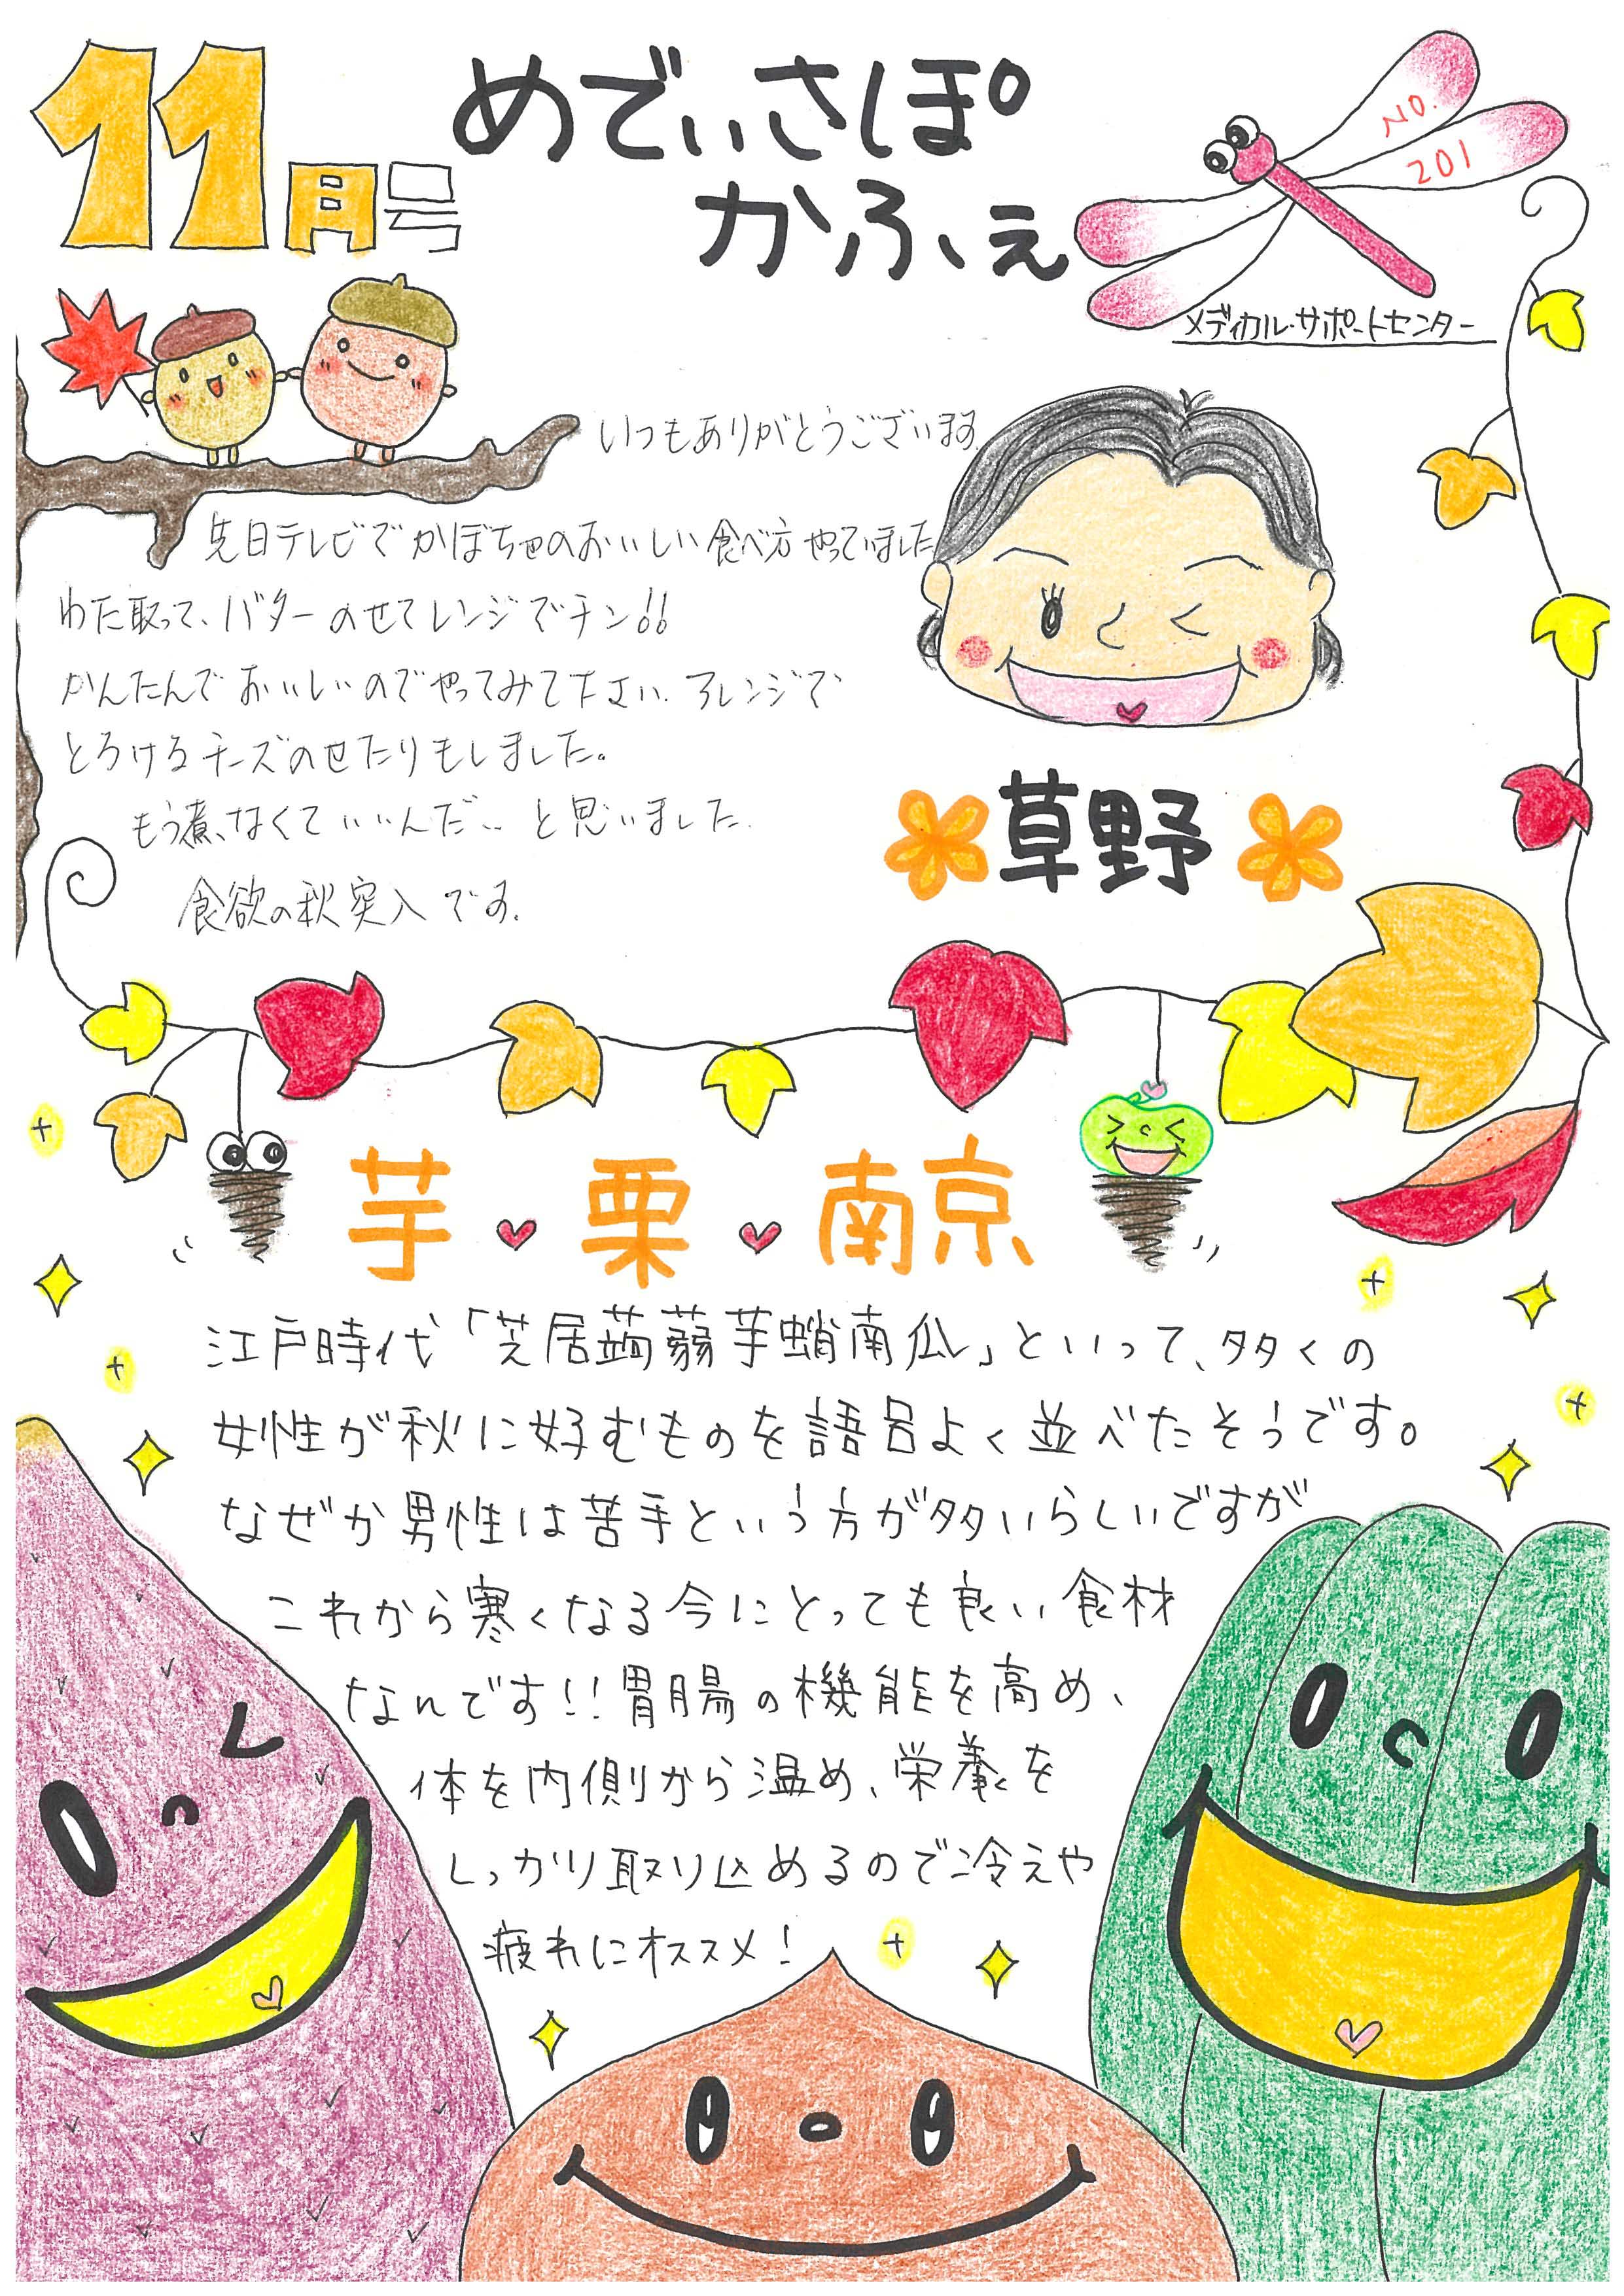 11月号
めでぃさぽ
かふぇ
NO.
201
メディカル・サポートセンター
いつもありがとうございます。
先日テレビでかぼちゃのおいしい食べ方やっていました
わた取って、バターのせてレンジでチン!!
かんたんでおいしいのでやってみて下さい。アレンジで
とろけるチーズのせたりもしました。
もう煮なくていいんだ… と思いました。
食欲の秋突入です。
草野
芋・栗・南京
江戸時代「芝居蒟蒻芋蛸南瓜」といって、多くの
女性が秋に好むものを語呂よく並べたそうです。
なぜか男性は苦手という方が多いらしいですが
これから寒くなる今にとっても良い食材
なんです!!胃腸の機能を高め、
体を内側から温め、栄養を
しっかり取り込めるので冷えや
疲れにオススメ!